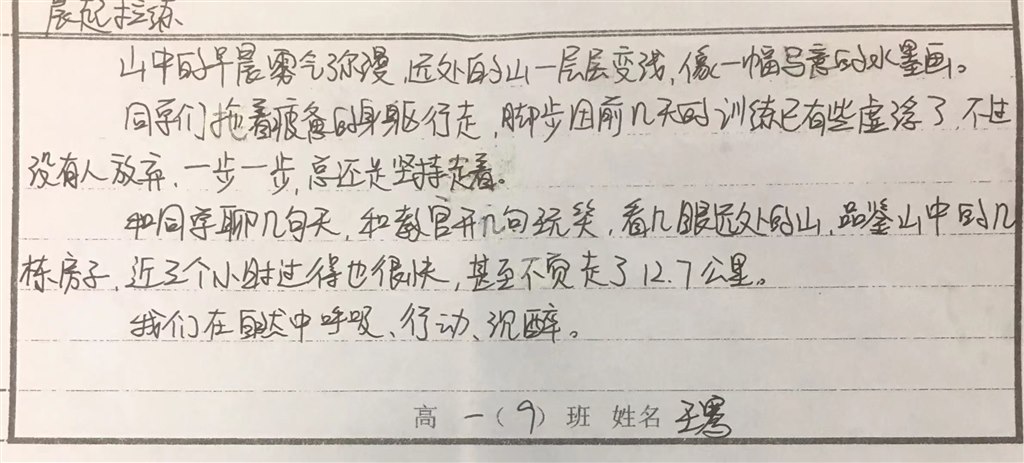 晨起拉练
山中的早晨雾气弥漫,远处的山一层层变浅,像一幅写意的水墨画。
同学们拖着疲惫的身躯行走,脚步因前几天的训练已有些虚浮了,不过
没有人放弃,一步一步,总还是坚持走着。
和同学聊几句天,和教官开几句玩笑,看几眼远处的山,品鉴山中的几
栋房子,近三个小时过得也很快,甚至不觉走了12.7公里。
我们在自然中呼吸、行动、沉醉。
高一(9)班 姓名 王